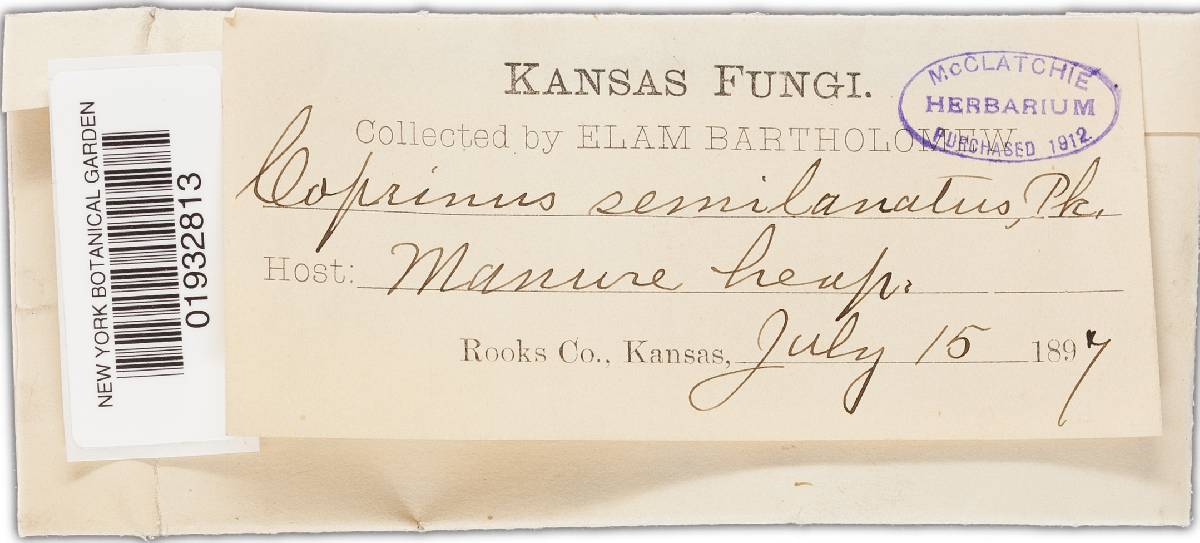 KANSAS FUNGI.
McCLATCHIE
HERBARIUM
PURCHASED 1912.
Collected by ELAM BARTHOLOMEW
Coprinus semilanatus, Pk.
Host: Manure heap.
Rooks Co., Kansas, July 15 1897
NEW YORK BOTANICAL GARDEN
01932813